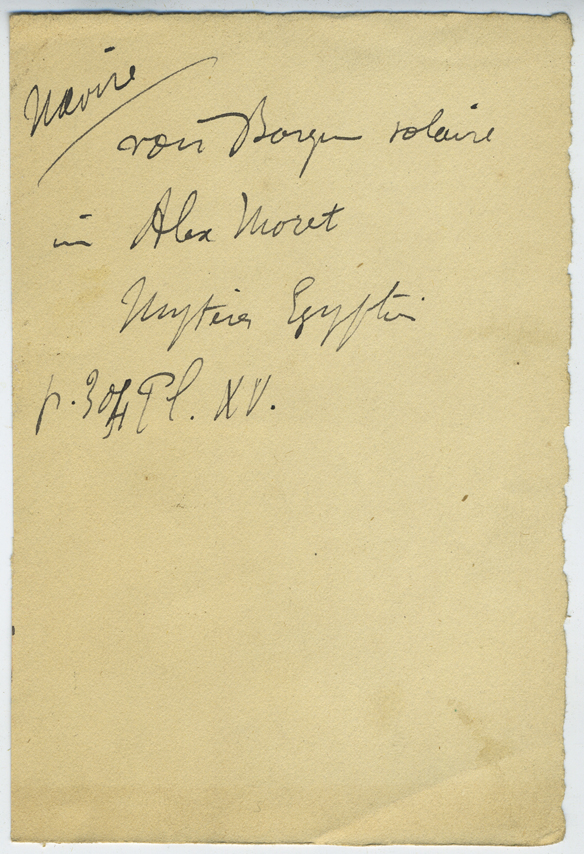 Navire
voir Barque solaire
in Alex Moret
Mystères Egyptiens
p. 304 Pl. XV.